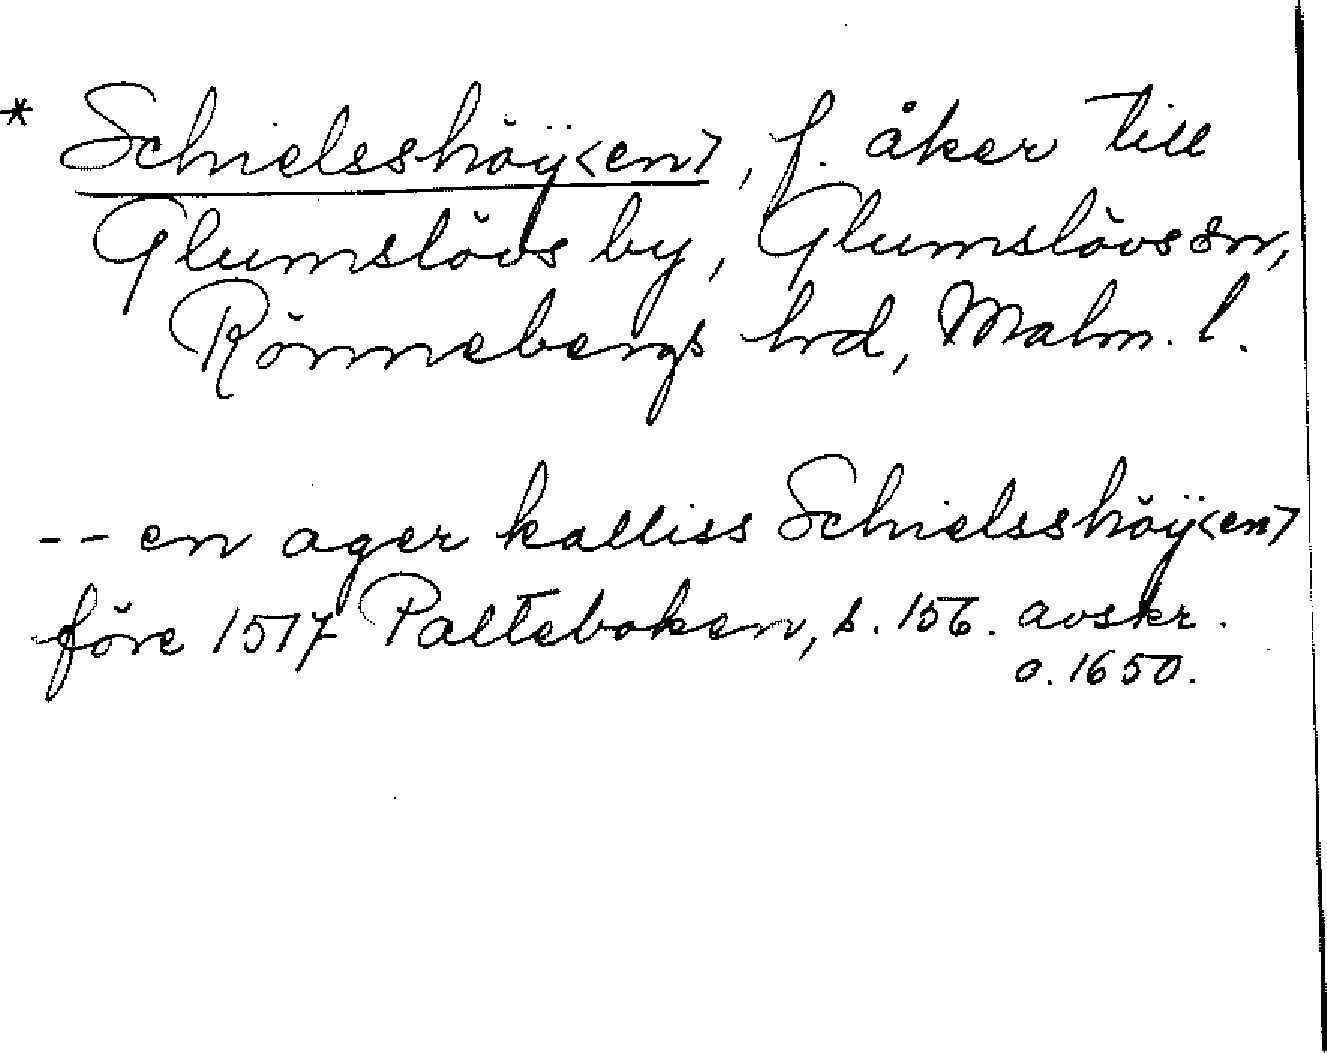 * Schielsshöÿ<en>, f. åker till
Glumslövs by, Glumslövs sn,
Rönnebergs hrd, Malm. l.
-- en ager kalliss Schielsshöÿ<en>
före 1517 Palteboken, s. 156. avskr.
o. 1650.